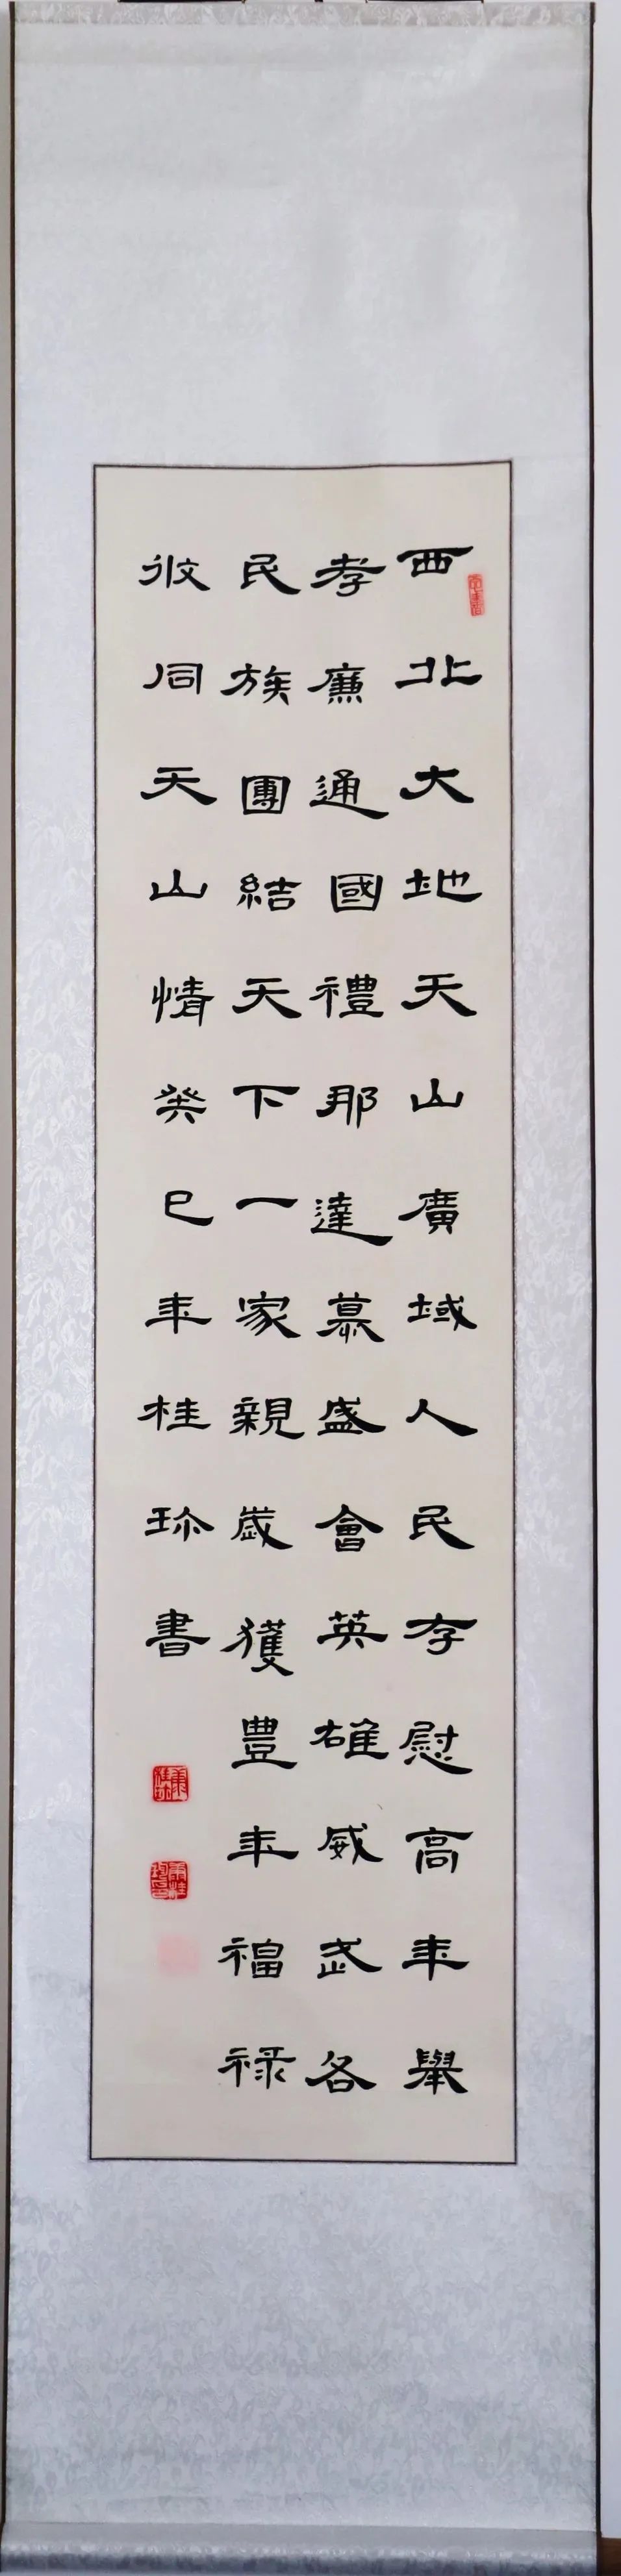 西北大地天山廣域人民存慰高年舉
孝廉通國禮那達慕盛會英雄威武各
民族團結天下一家親歲獲豊年福祿
彼同天山情癸巳年桂珎書